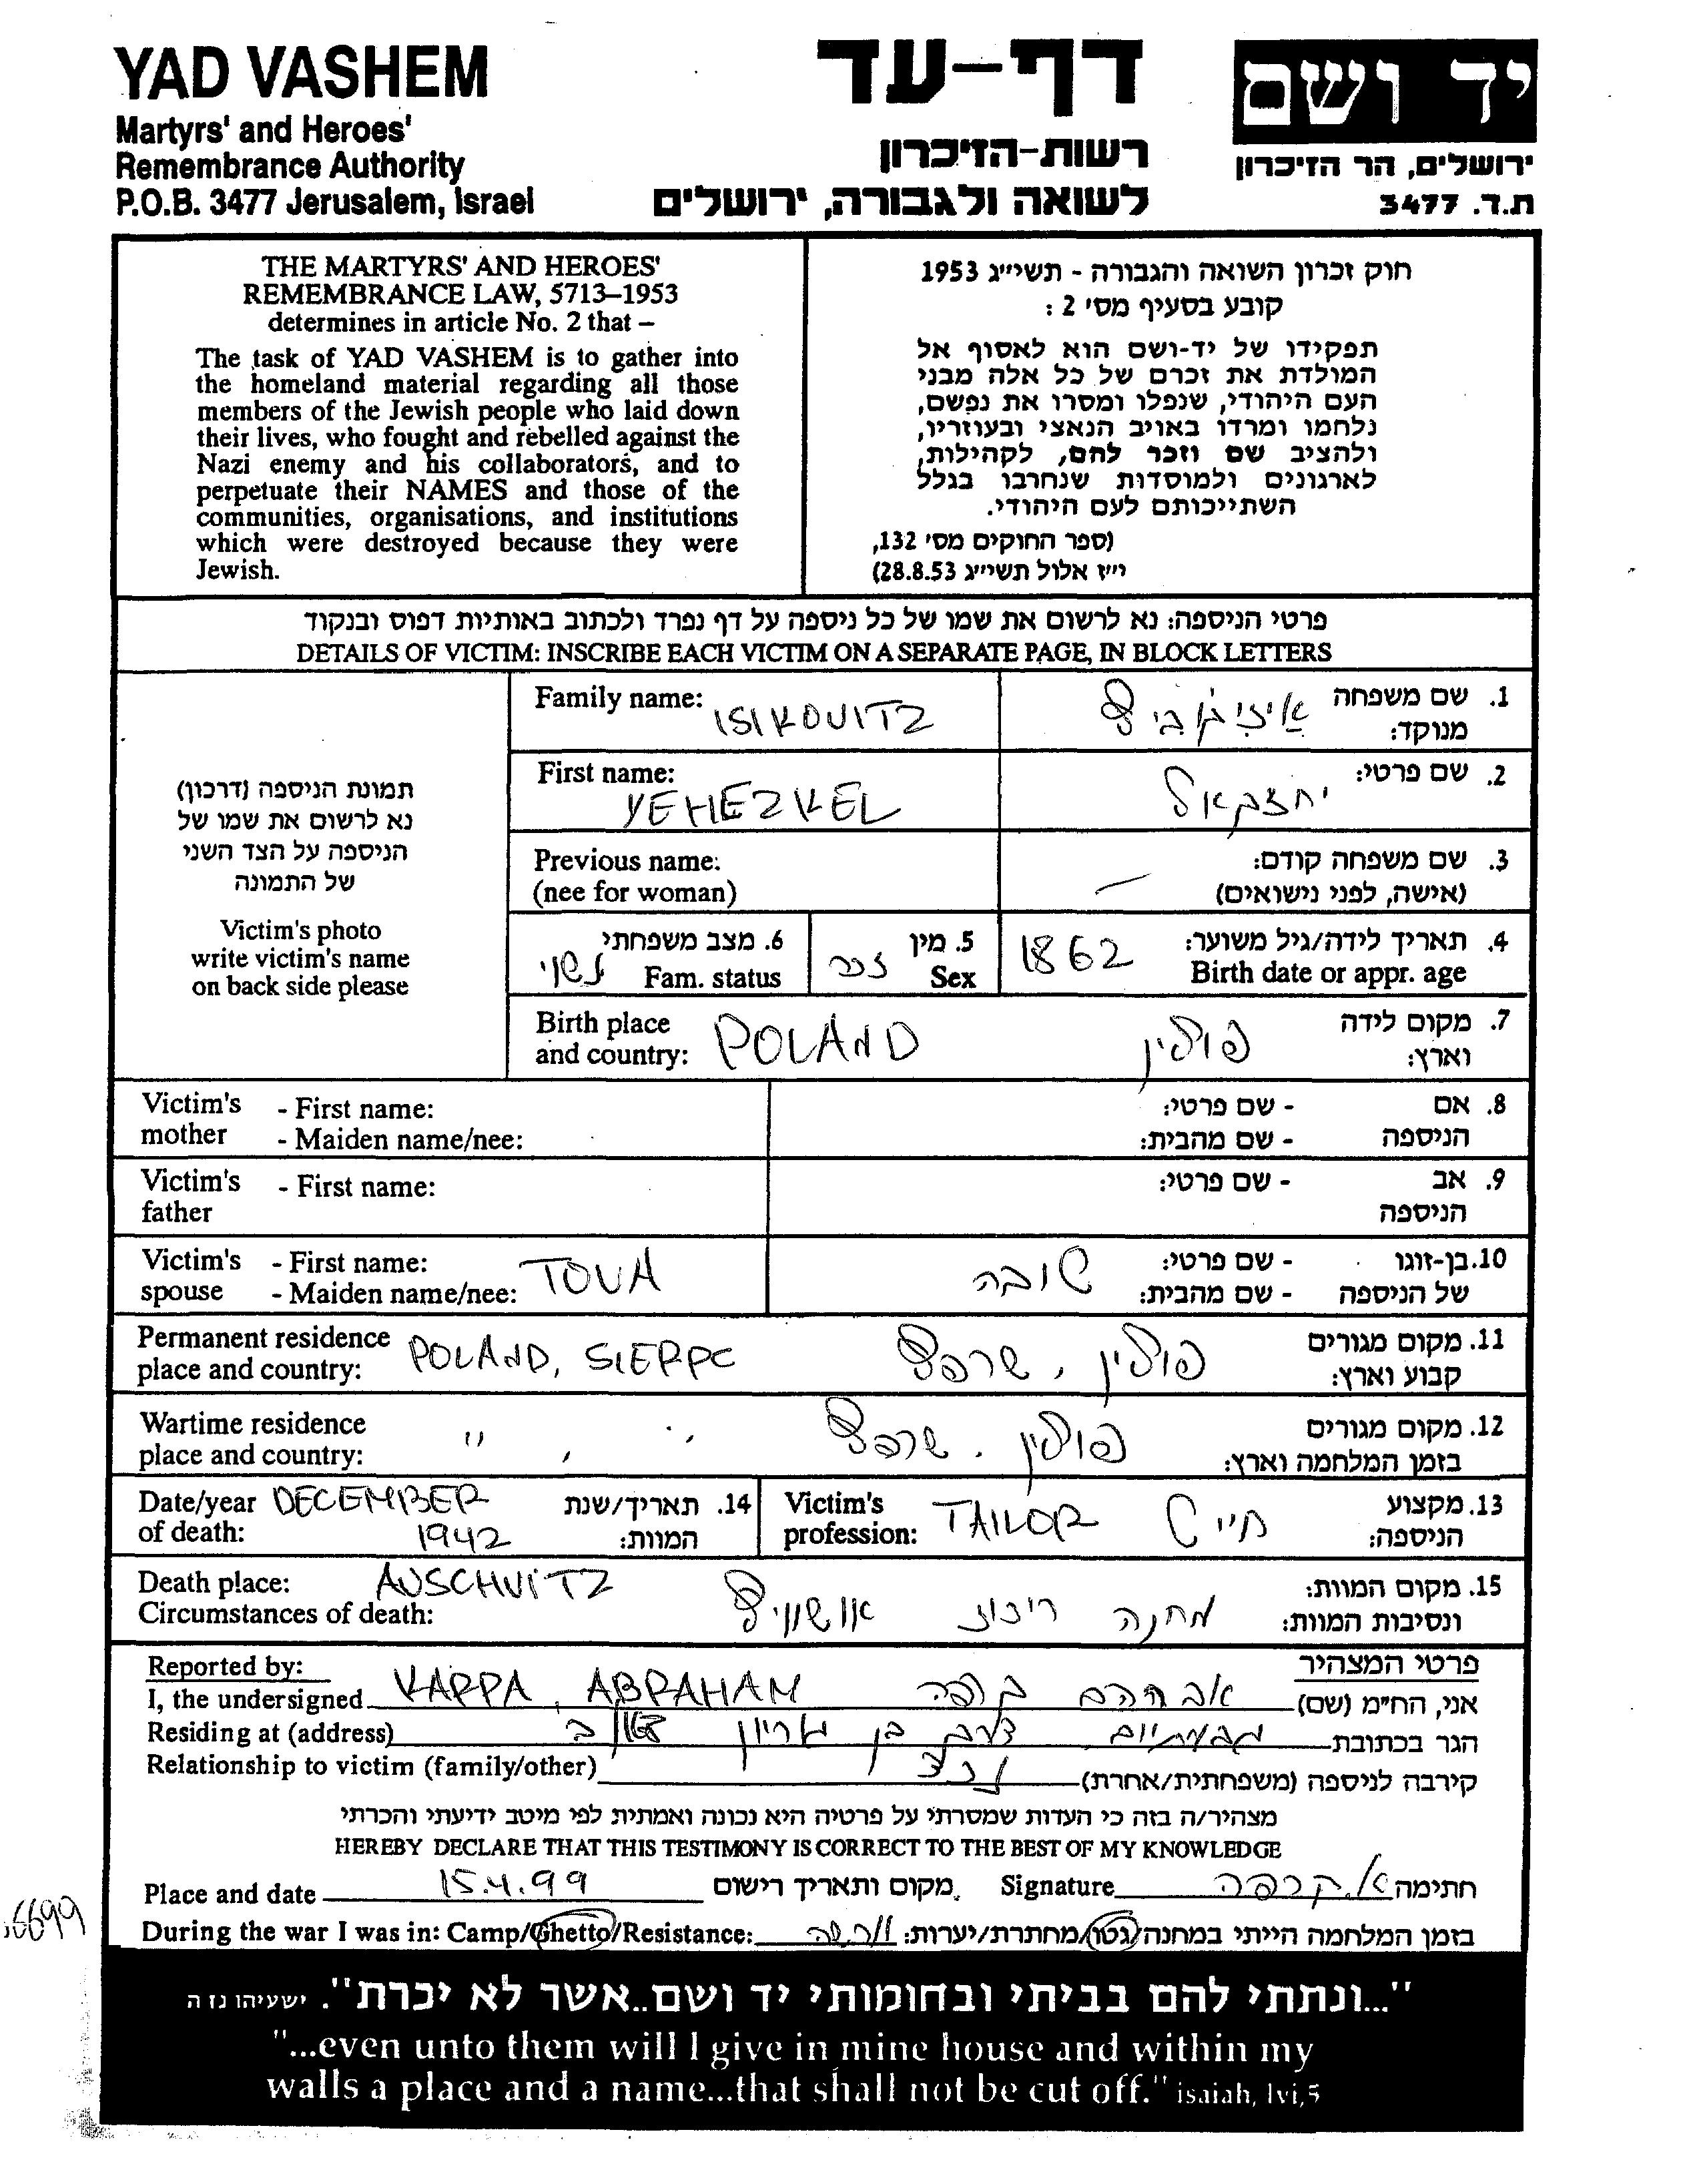 YAD VASHEM
Martyrs' and Heroes'
Remembrance Authority
P.O.B. 3477 Jerusalem, Israel
דף-עד
רשות-הזיכרון
לשואה ולגבורה, ירושלים
יד ושם
ירושלים, הר הזיכרון
ת.ד. 3477
THE MARTYRS' AND HEROES'
REMEMBRANCE LAW, 5713–1953
determines in article No. 2 that –
The task of YAD VASHEM is to gather into
the homeland material regarding all those
members of the Jewish people who laid down
their lives, who fought and rebelled against the
Nazi enemy and his collaborators, and to
perpetuate their NAMES and those of the
communities, organisations, and institutions
which were destroyed because they were
Jewish.
חוק זכרון השואה והגבורה - תשי״ג 1953
קובע בסעיף מס׳ 2 :
תפקידו של יד-ושם הוא לאסוף אל
המולדת את זכרם של כל אלה מבני
העם היהודי, שנפלו ומסרו את נפשם,
נלחמו ומרדו באויב הנאצי ובעוזריו,
ולהציב שם וזכר להם, לקהילות,
לארגונים ולמוסדות שנחרבו בגלל
השתייכותם לעם היהודי.
(ספר החוקים מס׳ 132,
י״ז אלול תשי״ג 28.8.53)
פרטי הניספה: נא לרשום את שמו של כל ניספה על דף נפרד ולכתוב באותיות דפוס ובנקוד
DETAILS OF VICTIM: INSCRIBE EACH VICTIM ON A SEPARATE PAGE, IN BLOCK LETTERS
תמונת הניספה (דרכון)
נא לרשום את שמו של
הניספה על הצד השני
של התמונה
Victim's photo
write victim's name
on back side please
Family name: ISIKOVITZ
1. שם משפחה מנוקד: איזיקביץ
First name: YEHEZKEL
2. שם פרטי: יחזקאל
Previous name:
(nee for woman)
3. שם משפחה קודם: —
(אישה, לפני נישואים)
4. תאריך לידה/גיל משוער: 1862
Birth date or appr. age
5. מין זכר
Sex
6. מצב משפחתי נשוי
Fam. status
Birth place
and country: POLAND
7. מקום לידה
וארץ: פולין
Victim's mother - First name:
- Maiden name/nee:
8. אם הניספה - שם פרטי:
- שם מהבית:
Victim's father - First name:
9. אב הניספה - שם פרטי:
Victim's spouse - First name: TOVA
- Maiden name/nee:
10. בן-זוגו של הניספה - שם פרטי: טובה
- שם מהבית:
Permanent residence
place and country: POLAND, SIERPC
11. מקום מגורים
קבוע וארץ: פולין, שרפץ
Wartime residence
place and country: " , "
12. מקום מגורים
בזמן המלחמה וארץ: פולין, שרפץ
Date/year of death: DECEMBER 1942
14. תאריך/שנת המוות:
Victim's profession: TAILOR
13. מקצוע הניספה: חייט
Death place: AUSCHVITZ
Circumstances of death:
15. מקום המוות:
ונסיבות המוות: מחנה ריכוז אושוויץ
Reported by:
פרטי המצהיר
I, the undersigned KARPA, ABRAHAM
אני, הח״מ (שם) אברהם קרפה
Residing at (address)
הגר בכתובת גבעתיים דרך בן גוריון
Relationship to victim (family/other)
קירבה לניספה (משפחתית/אחרת) נכד
מצהיר/ה בזה כי העדות שמסרתי על פרטיה היא נכונה ואמתית לפי מיטב ידיעתי והכרתי
HEREBY DECLARE THAT THIS TESTIMONY IS CORRECT TO THE BEST OF MY KNOWLEDGE
Place and date 15.4.99 מקום ותאריך רישום
Signature א. קרפה חתימה
During the war I was in: Camp/Ghetto/Resistance:
בזמן המלחמה הייתי במחנה/גטו/מחתרת/יערות: ורשה
"...ונתתי להם בביתי ובחומותי יד ושם..אשר לא יכרת". ישעיהו נז ה
"...even unto them will I give in mine house and within my
walls a place and a name...that shall not be cut off." isaiah, lvi,5